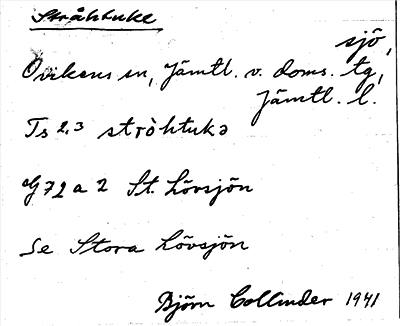 Stråhtuke
sjö,
Ovikens sn, Jämtl. v. doms. tg,
Jämtl. l.
Ts 2,3 stròhtukə
G 72 a 2 St. Hövsjön
Se Stora Hövsjön
Björn Collinder 1941